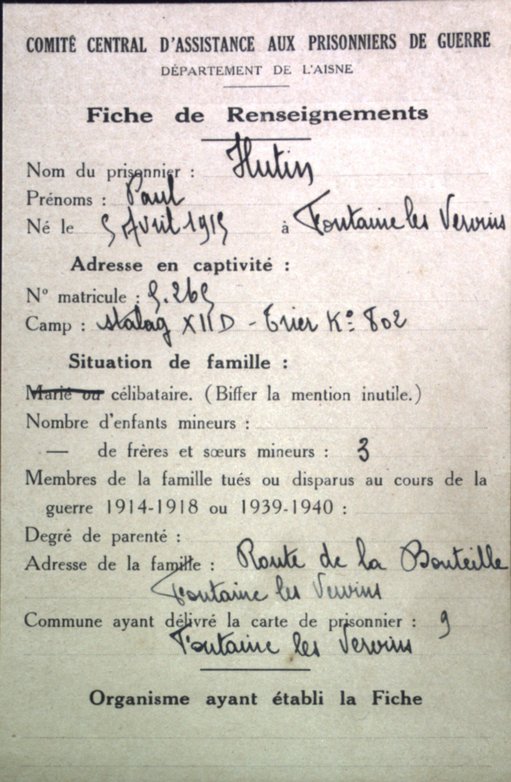 COMITÉ CENTRAL D'ASSISTANCE AUX PRISONNIERS DE GUERRE
DÉPARTEMENT DE L'AISNE
Fiche de Renseignements
Nom du prisonnier : Hutin
Prénoms : Paul
Né le 5 Avril 1915 à Fontaine les Vervins
Adresse en captivité :
N° matricule : 5.265
Camp : Stalag XII D - Trier K° 802
Situation de famille :
Marié ou célibataire. (Biffer la mention inutile.)
Nombre d'enfants mineurs :
— de frères et sœurs mineurs : 3
Membres de la famille tués ou disparus au cours de la
guerre 1914-1918 ou 1939-1940 :
Degré de parenté :
Adresse de la famille : Route de la Bouteille
Fontaine les Vervins
Commune ayant délivré la carte de prisonnier : 9
Fontaine les Vervins
Organisme ayant établi la Fiche